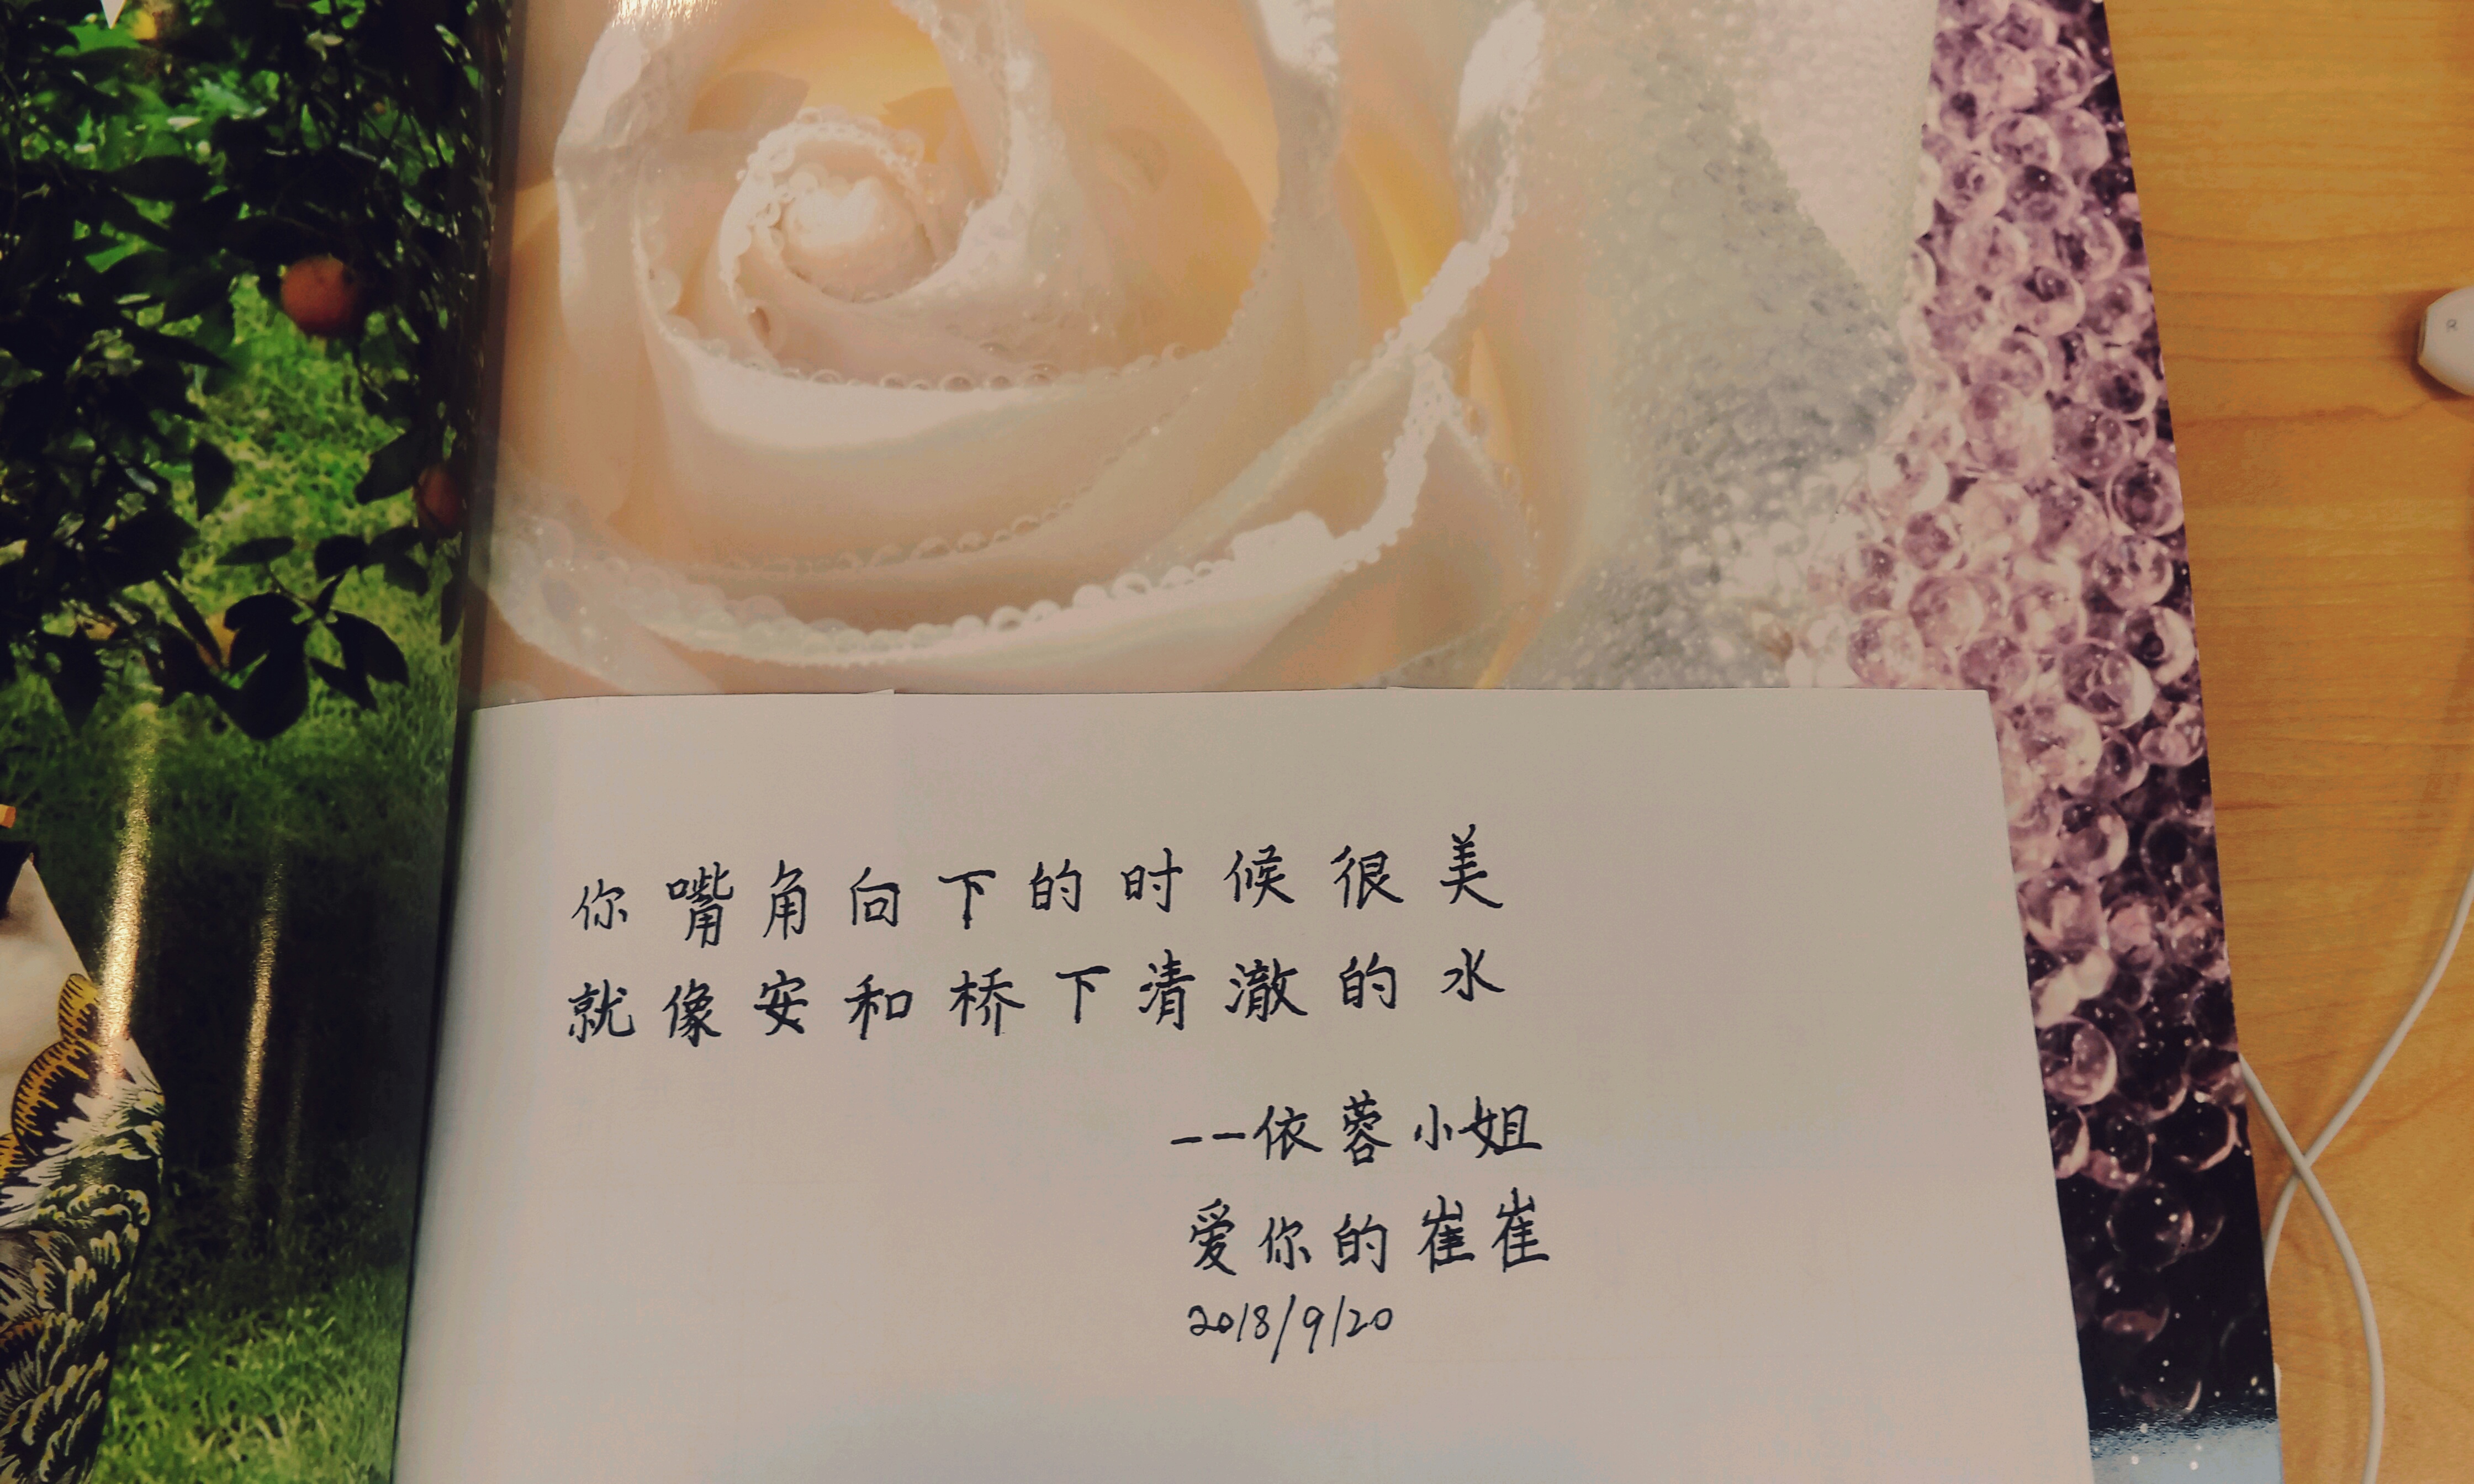 你嘴角向下的时候很美
就像安和桥下清澈的水
--依蓉小姐
爱你的崔崔
2018/9/20